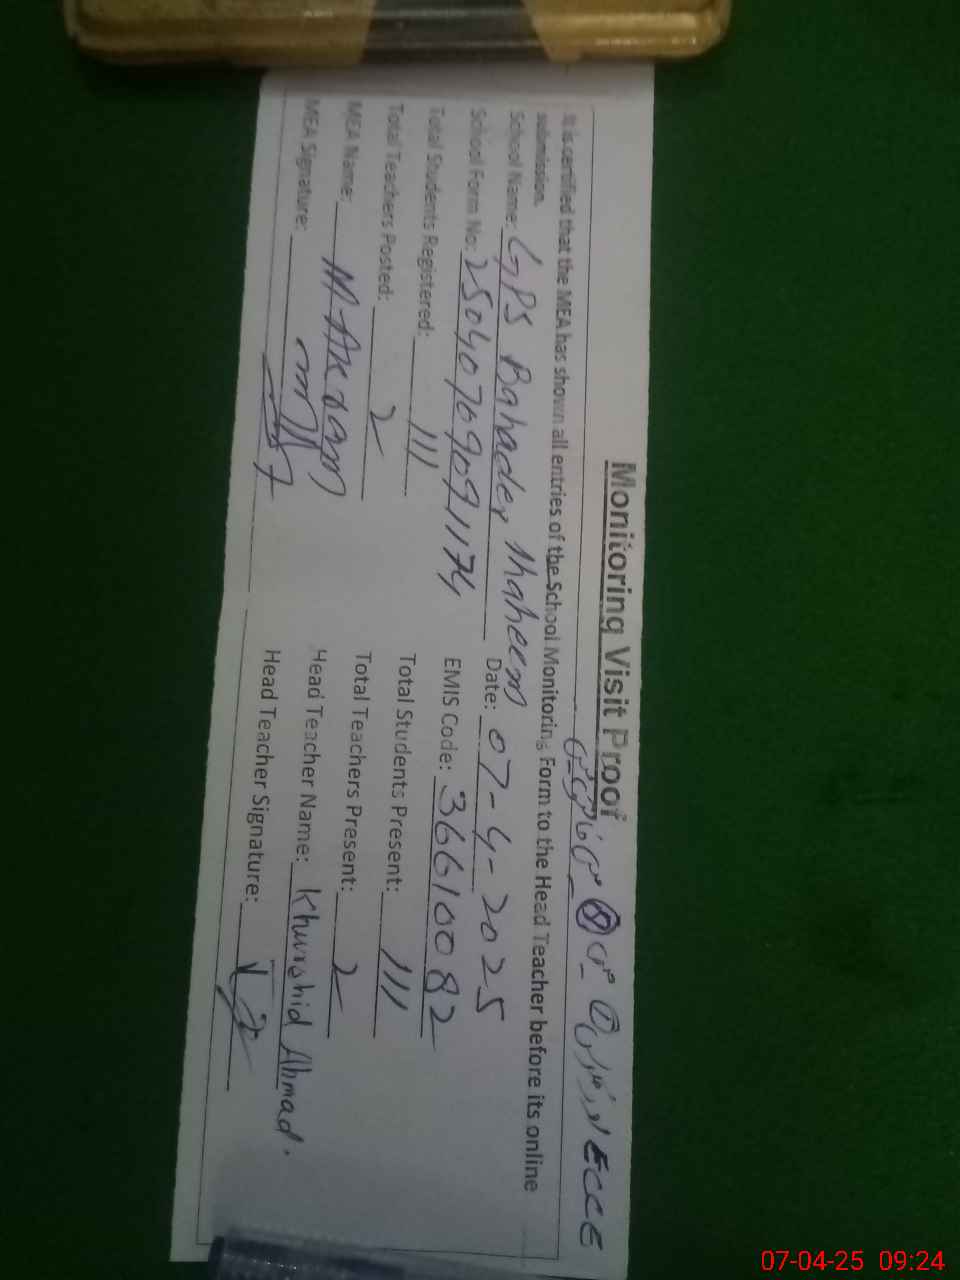 Monitoring Visit Proof
ECCE
It is certified that the MEA has shown all entries of the School Monitoring Form to the Head Teacher before its online
submission.
School Name: GPS Bahader Date: 07-4-2025
School Form No: EMIS Code: 36610082
Total Students Registered: 111 Total Students Present: 111
Total Teachers Posted: 2 Total Teachers Present: 2
MEA Name: M Akram Head Teacher Name: Khurshid Ahmad.
MEA Signature: Head Teacher Signature:
07-04-25 09:24